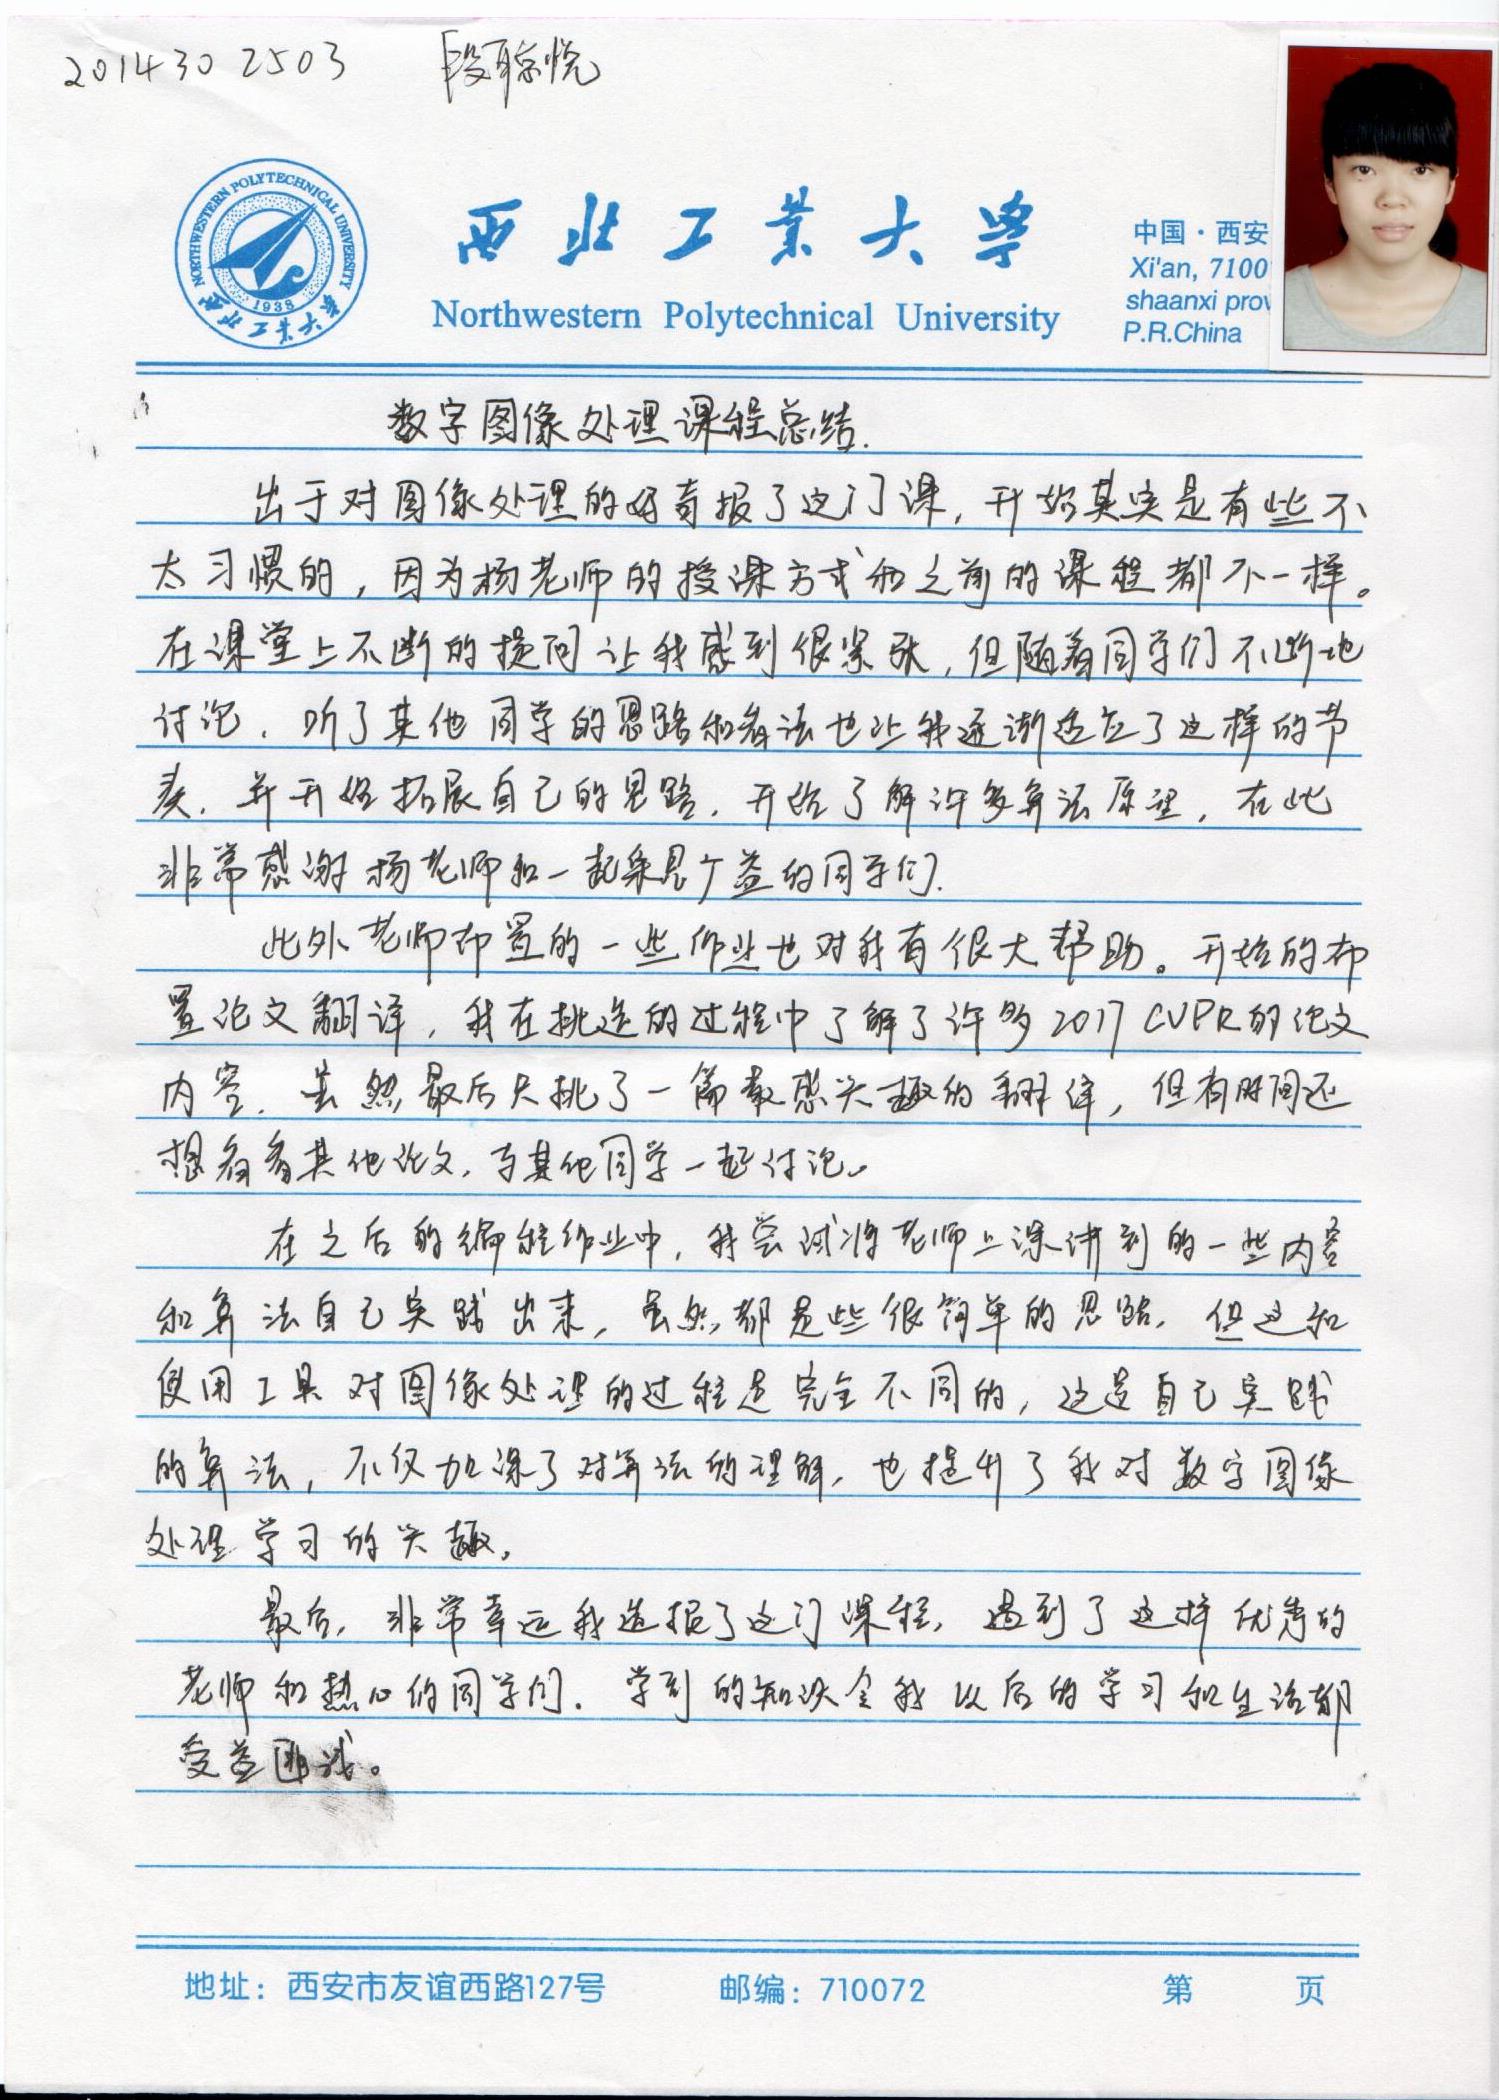 2014302503 段聪悦
NORTHWESTERN POLYTECHNICAL UNIVERSITY
1938
西北工业大学
西北工业大学
Northwestern Polytechnical University
中国·西安
Xi'an, 7100
shaanxi prov
P.R.China
数字图像处理课程总结.
出于对图像处理的好奇报了这门课,开始其实是有些不
太习惯的,因为杨老师的授课方式和之前的课程都不一样。
在课堂上不断的提问让我感到很紧张,但随着同学们不断地
讨论,听了其他同学的思路和看法也让我逐渐适应了这样的节
奏,并开始拓展自己的思路,开始了解许多算法原理,在此
非常感谢杨老师和一起集思广益的同学们.
此外老师布置的一些作业也对我有很大帮助。开始的布
置论文翻译,我在挑选的过程中了解了许多2017 CVPR的论文
内容,虽然最后只挑了一篇最感兴趣的翻译,但有时间还
想看看其他论文,与其他同学一起讨论。
在之后的编程作业中,我尝试将老师上课讲到的一些内容
和算法自己实践出来,虽然都是些很简单的思路,但这和
使用工具对图像处理的过程是完全不同的,这是自己实践
的算法,不仅加深了对算法的理解,也提升了我对数字图像
处理学习的兴趣。
最后,非常幸运我选报了这门课程,遇到了这样优秀的
老师和热心的同学们.学到的知识令我以后的学习和生活都
受益匪浅。
地址:西安市友谊西路127号 邮编:710072 第 页